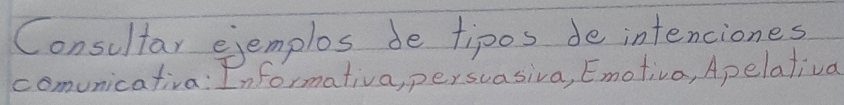 Consultar ejemplos de tipos de intenciones
comunicativa: Informativa, persuasiva, Emotiva, Apelativa